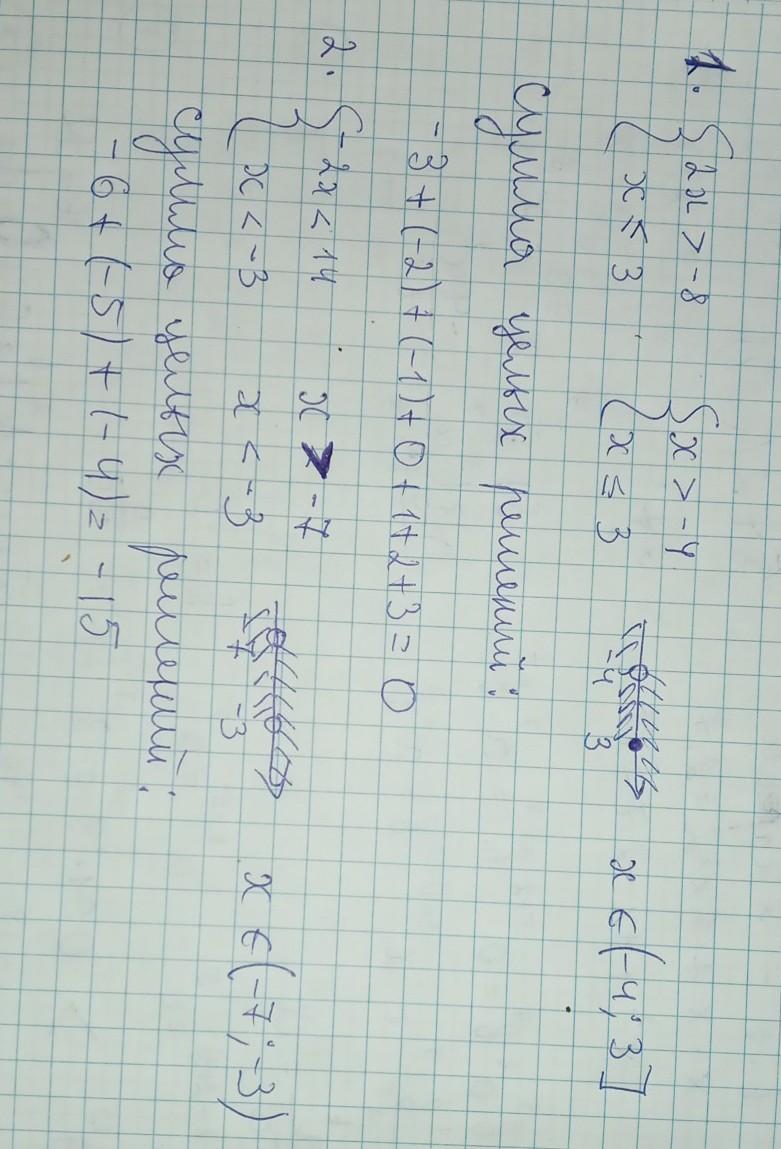 1. { 2x > -8 { x > -4 -4 x ∈ (-4; 3]
{ x ≤ 3 { x ≤ 3 3
Сумма целых решений:
-3 + (-2) + (-1) + 0 + 1 + 2 + 3 = 0
2. { -2x < 14 x > -7
{ x < -3 x < -3 -7 -3 x ∈ (-7; -3)
Сумма целых решений:
-6 + (-5) + (-4) = -15